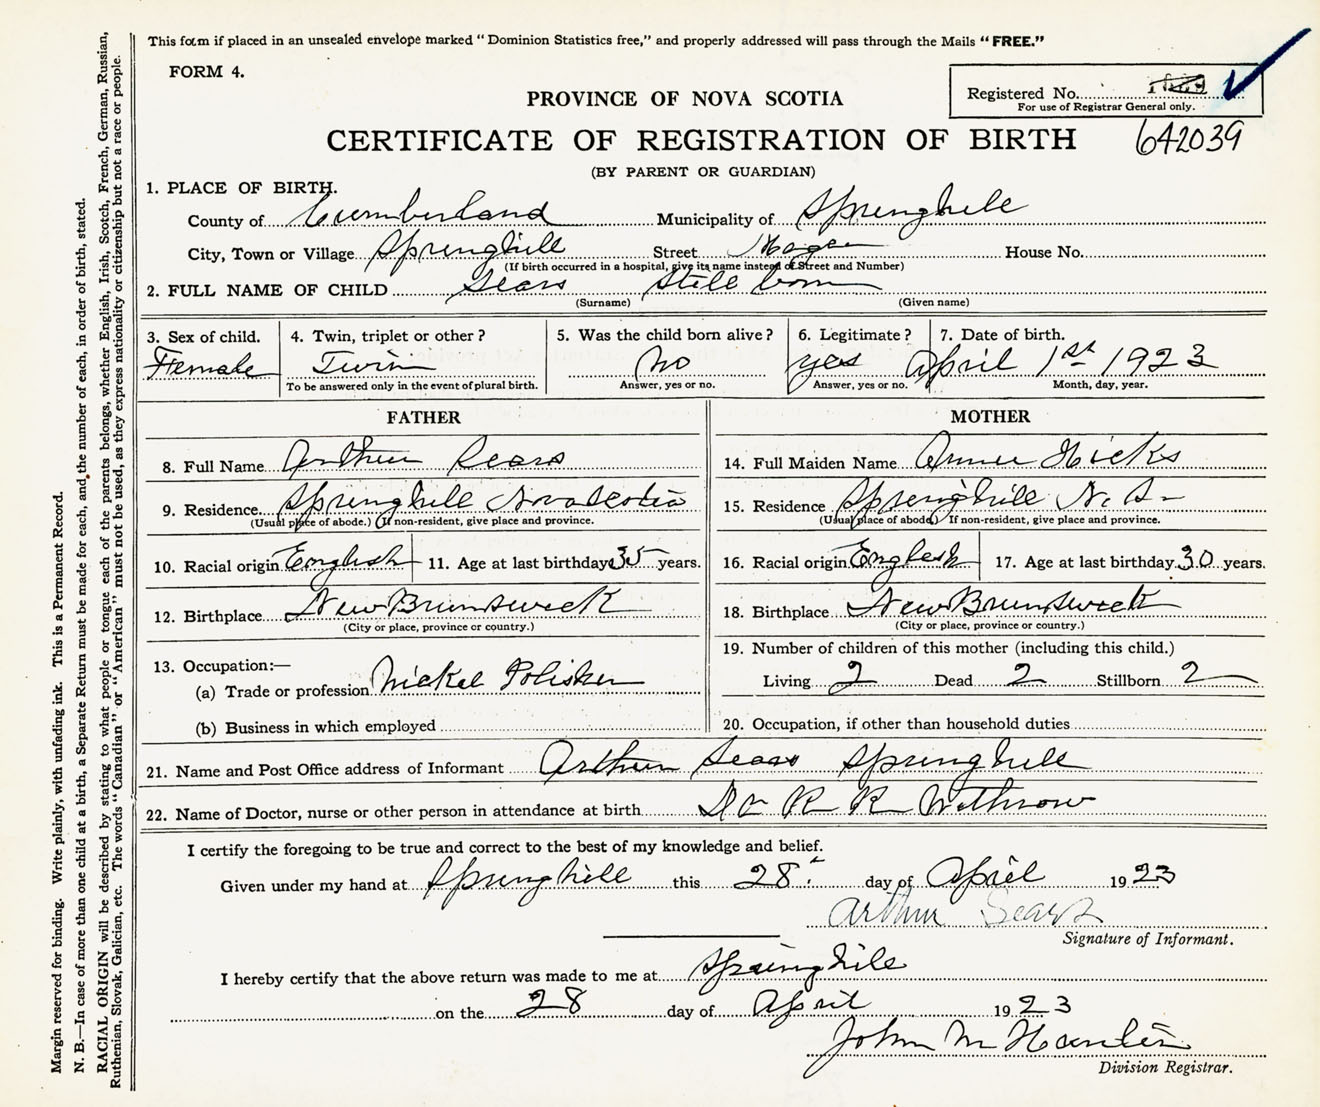 This form if placed in an unsealed envelope marked “Dominion Statistics free,” and properly addressed will pass through the Mails “FREE.”
FORM 4.
Registered No.
For use of Registrar General only.
PROVINCE OF NOVA SCOTIA
CERTIFICATE OF REGISTRATION OF BIRTH
642039
(BY PARENT OR GUARDIAN)
1. PLACE OF BIRTH.
County of Cumberland Municipality of Springhill
City, Town or Village Springhill Street House No.
(If birth occurred in a hospital, give its name instead of Street and Number)
2. FULL NAME OF CHILD Sears Still born
(Surname) (Given name)
3. Sex of child. 4. Twin, triplet or other? 5. Was the child born alive? 6. Legitimate? 7. Date of birth.
Female Twin No yes April 1st 1923
To be answered only in the event of plural birth. Answer, yes or no. Answer, yes or no. Month, day, year.
FATHER
8. Full Name Arthur Sears
9. Residence Springhill Nova Scotia
(Usual place of abode.) (If non-resident, give place and province.
10. Racial origin English 11. Age at last birthday 35 years.
12. Birthplace New Brunswick
(City or place, province or country.)
13. Occupation:—
(a) Trade or profession Nickel Polisher
(b) Business in which employed
MOTHER
14. Full Maiden Name Annie Hicks
15. Residence Springhill N. S.
(Usual place of abode) If non-resident, give place and province.
16. Racial origin English 17. Age at last birthday 30 years.
18. Birthplace New Brunswick
(City or place, province or country.)
19. Number of children of this mother (including this child.)
Living 2 Dead 2 Stillborn 2
20. Occupation, if other than household duties
21. Name and Post Office address of Informant Arthur Sears Springhill
22. Name of Doctor, nurse or other person in attendance at birth Dr R R Withrow
I certify the foregoing to be true and correct to the best of my knowledge and belief.
Given under my hand at Springhill this 28. day of April 1923
Arthur Sears
Signature of Informant.
I hereby certify that the above return was made to me at Springhill
on the 28 day of April 1923
John M Hunter
Division Registrar.
Margin reserved for binding. Write plainly, with unfading ink. This is a Permanent Record.
N. B.—In case of more than one child at a birth, a Separate Return must be made for each, and the number of each, in order of birth, stated.
RACIAL ORIGIN will be described by stating to what people or tongue each of the parents belongs, whether English, Irish, Scotch, French, German, Russian,
Ruthenian, Slovak, Galician, etc. The words “Canadian” or “American” must not be used, as they express nationality or citizenship but not a race or people.